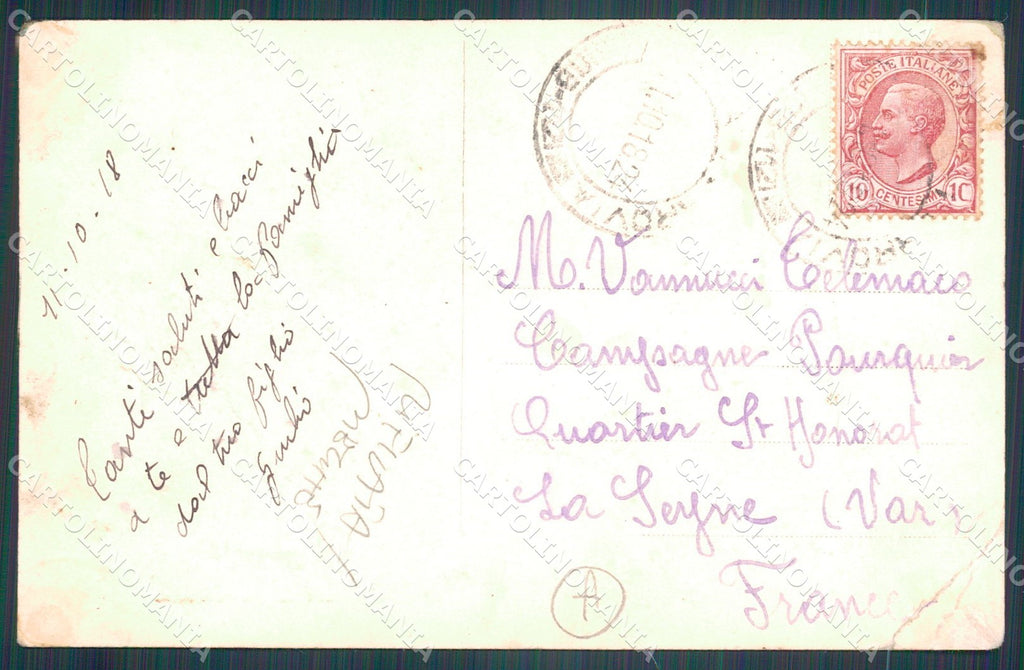 11.10.18
Tanti saluti e bacci
a te e tutta la Famiglia
dal tuo figlio
Giulio
POSTE ITALIANE
10 CENTESIMI 10
11.10.18 22
M. Vannucci Telemaco
Campagne Pourquier
Quartier St Honorat
La Seyne (Var)
France
A
CARTOLINOMANIA